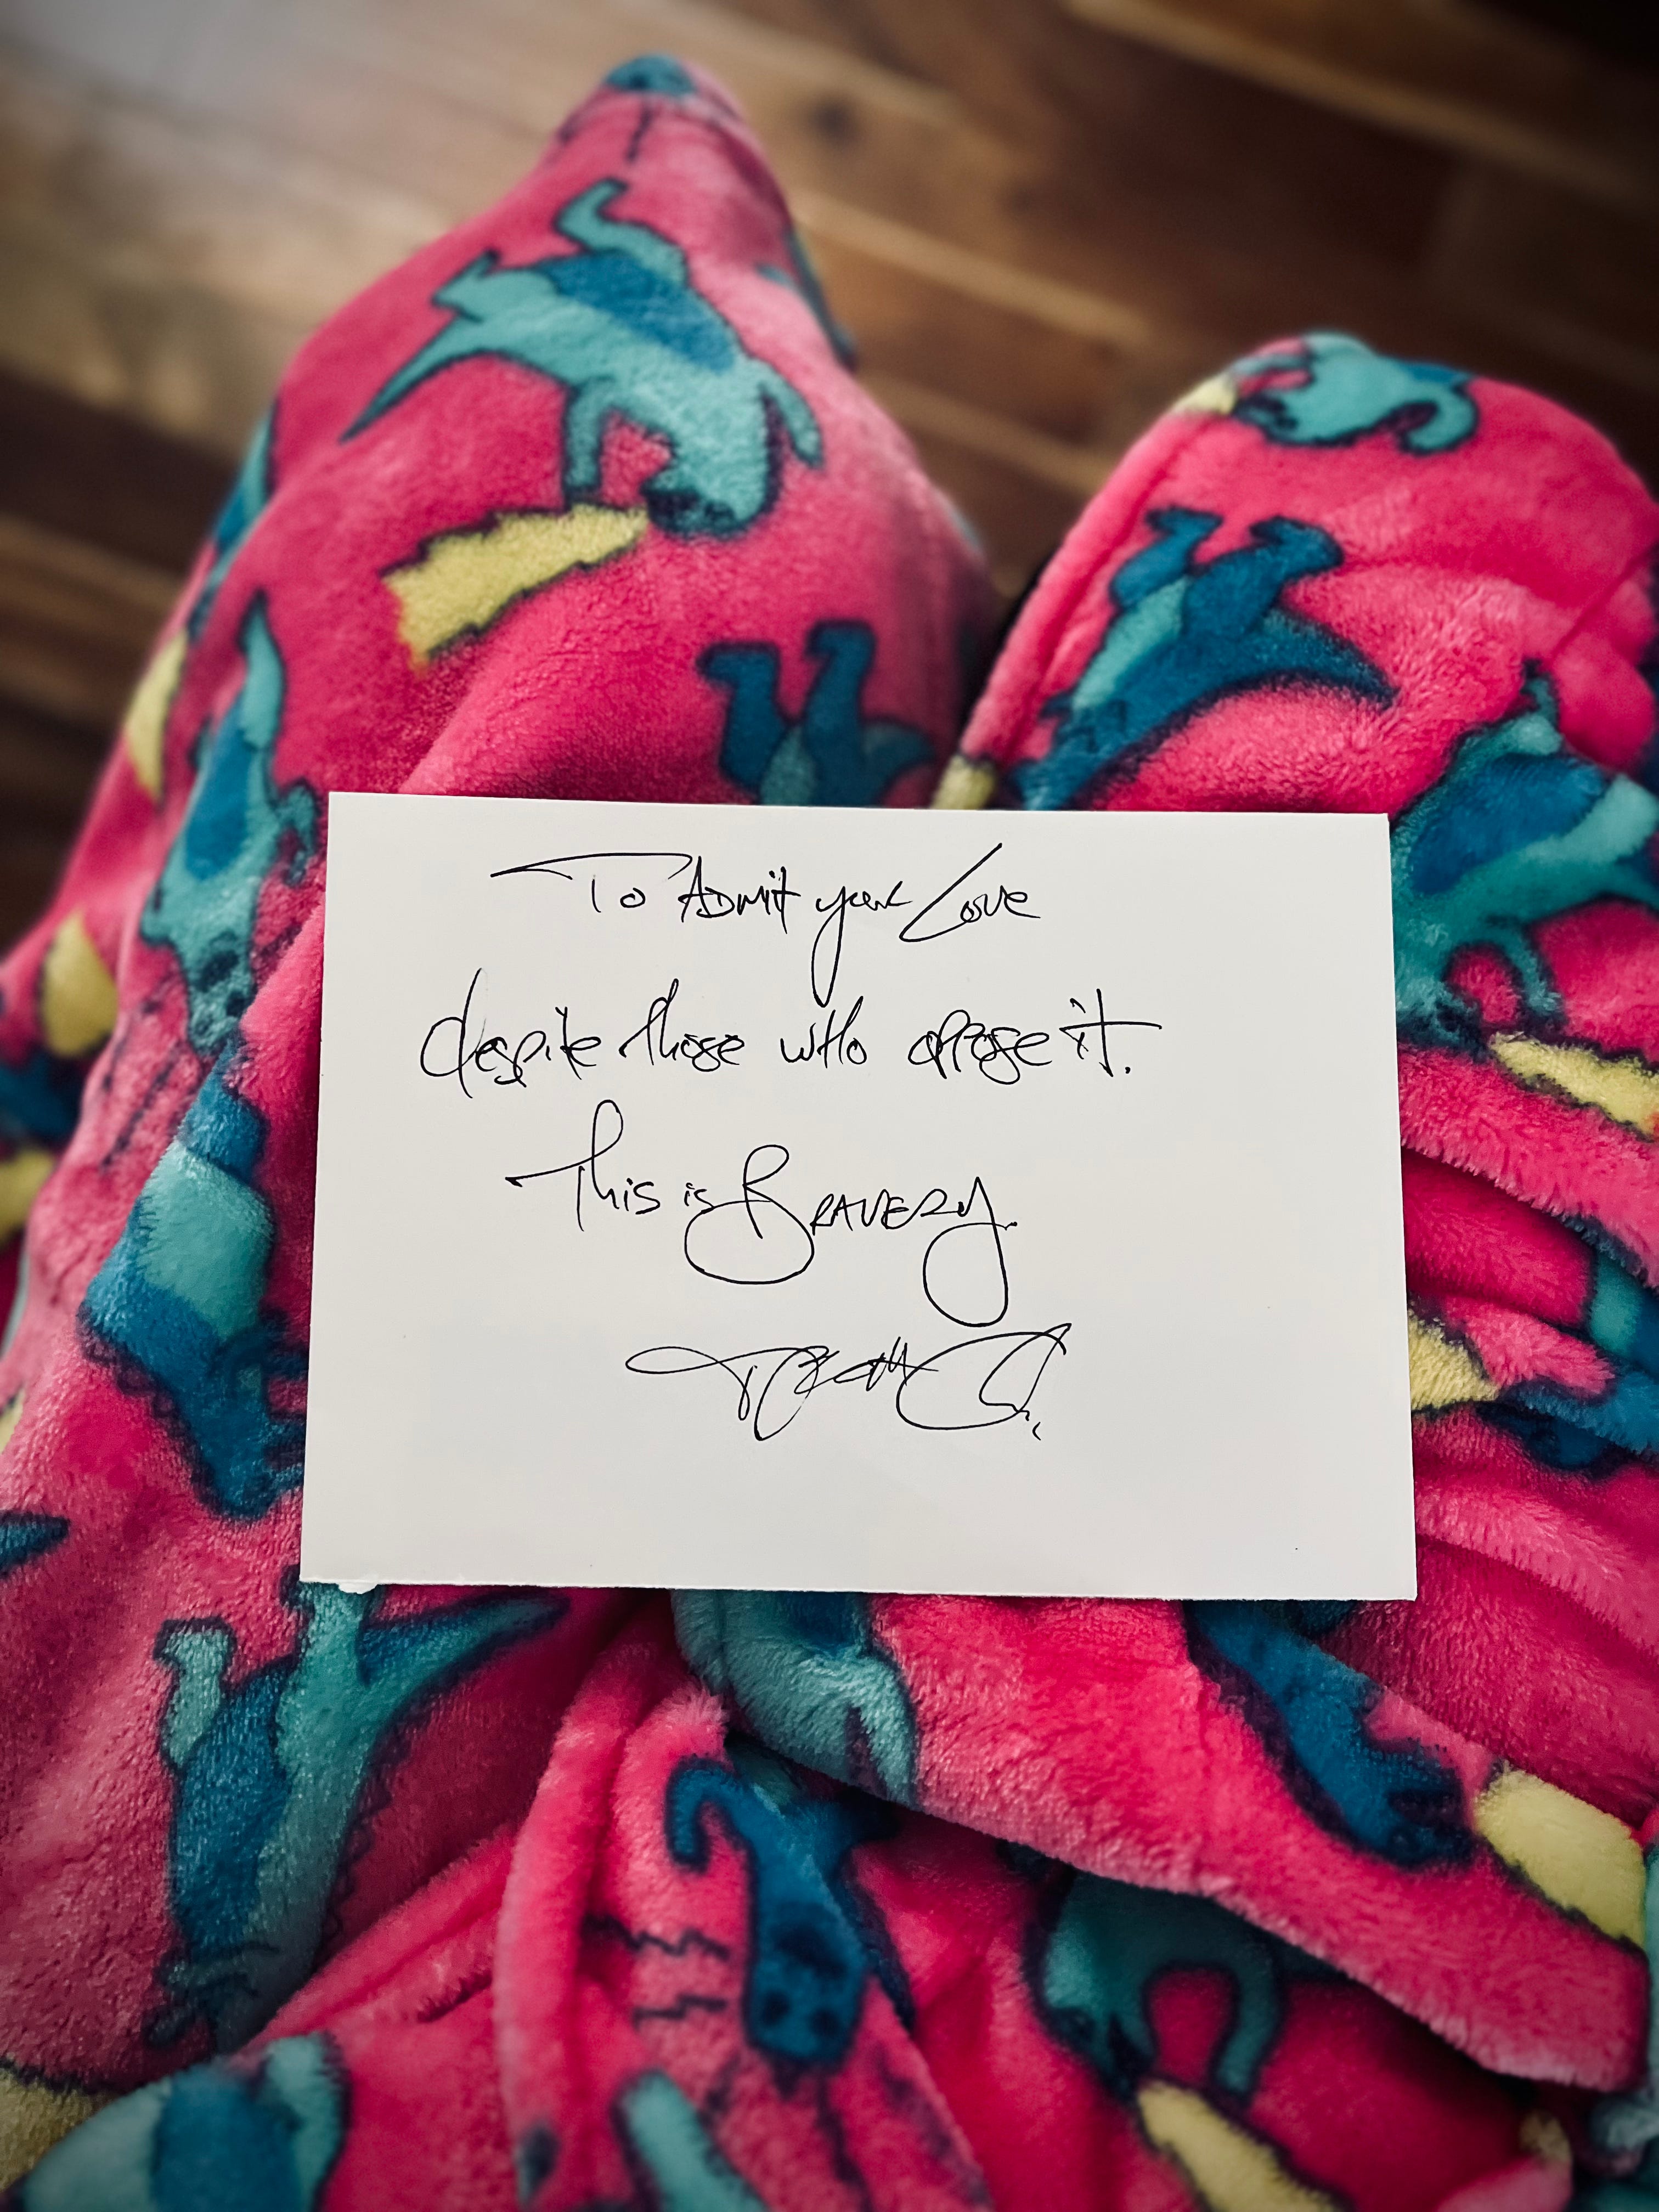 To Admit your Love
despite those who oppose it.
This is BRAVERY.